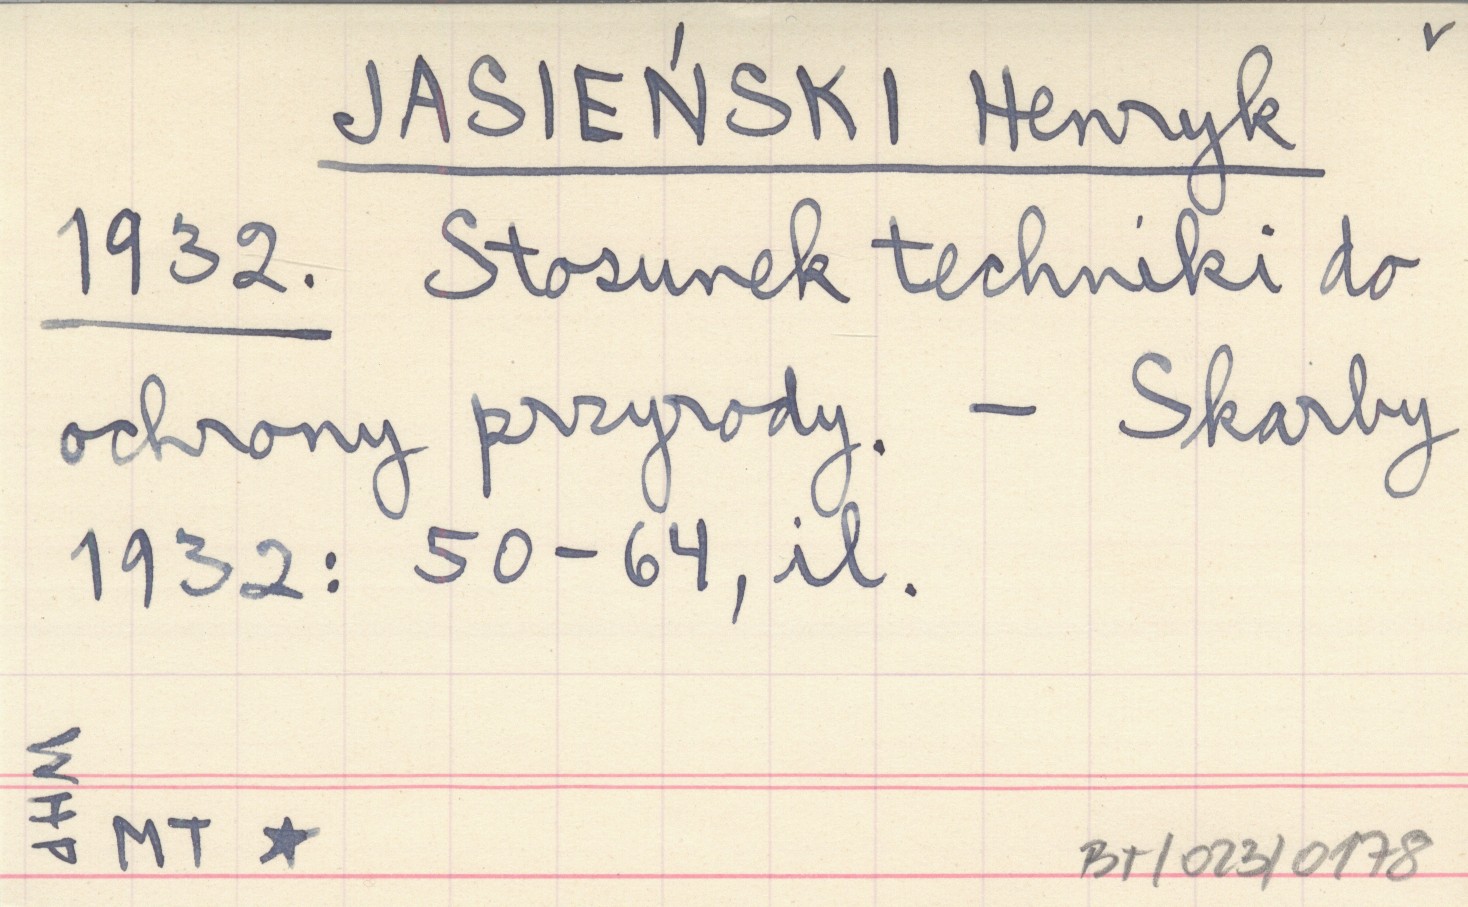 JASIEŃSKI Henryk
1932. Stosunek techniki do
ochrony przyrody. – Skarby
1932: 50–64, il.
WHP
MT ★
BT/023/0178